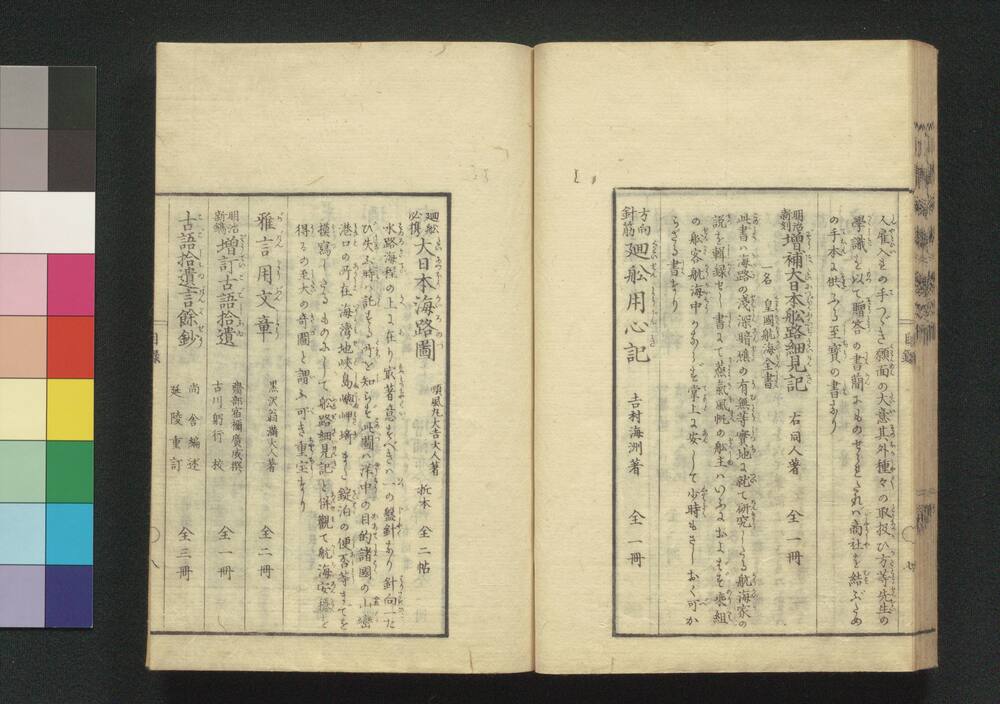 人雇入の手つゞき額面の大意其外種々の取扱ひ方等先生の
學識を以て贈答の書簡にものせられたれハ商社を結ぶため
の手本に供ふる至寶の書なり
明治新刻 増補大日本舩路細見記 右同人著 全一冊
一名 皇國航海全書
此書ハ海路の淺深暗礁の有無等實地に就て研究したる航海家の
説を輯録せし書にて蒸氣風帆の舩主ハいふにおよばず乘組
の舩客航海中かならず掌上に安して少時もさしおく可か
らざる書なり
方向針筋 廻舩用心記 吉村海洲著 全一冊
目録 七
廻舩必携 大日本海路圖 順風丸大吉大人著 折本 全二帖
水路海程の上に在り最著意すべきハ一の盤針なり針向一た
び失ふ時ハ託する所を知らず此圖ハ洋中の目的諸國の山巒
港口の所在海湾地峡島嶼岬埼まし錠泊の便否等までを
摸寫したるものにして舩路細見記と併觀て航海安穩を
得るの至大の奇圖と謂ふ可き重宝なり
雅言用文章 黒沢翁満大人著 全二冊
明治新鐫 増訂古語拾遺 齋部宿禰廣成撰 古川躬行校 全一冊
古語拾遺言餘鈔 尚舎編述 延陵重訂 全三冊
目録 八